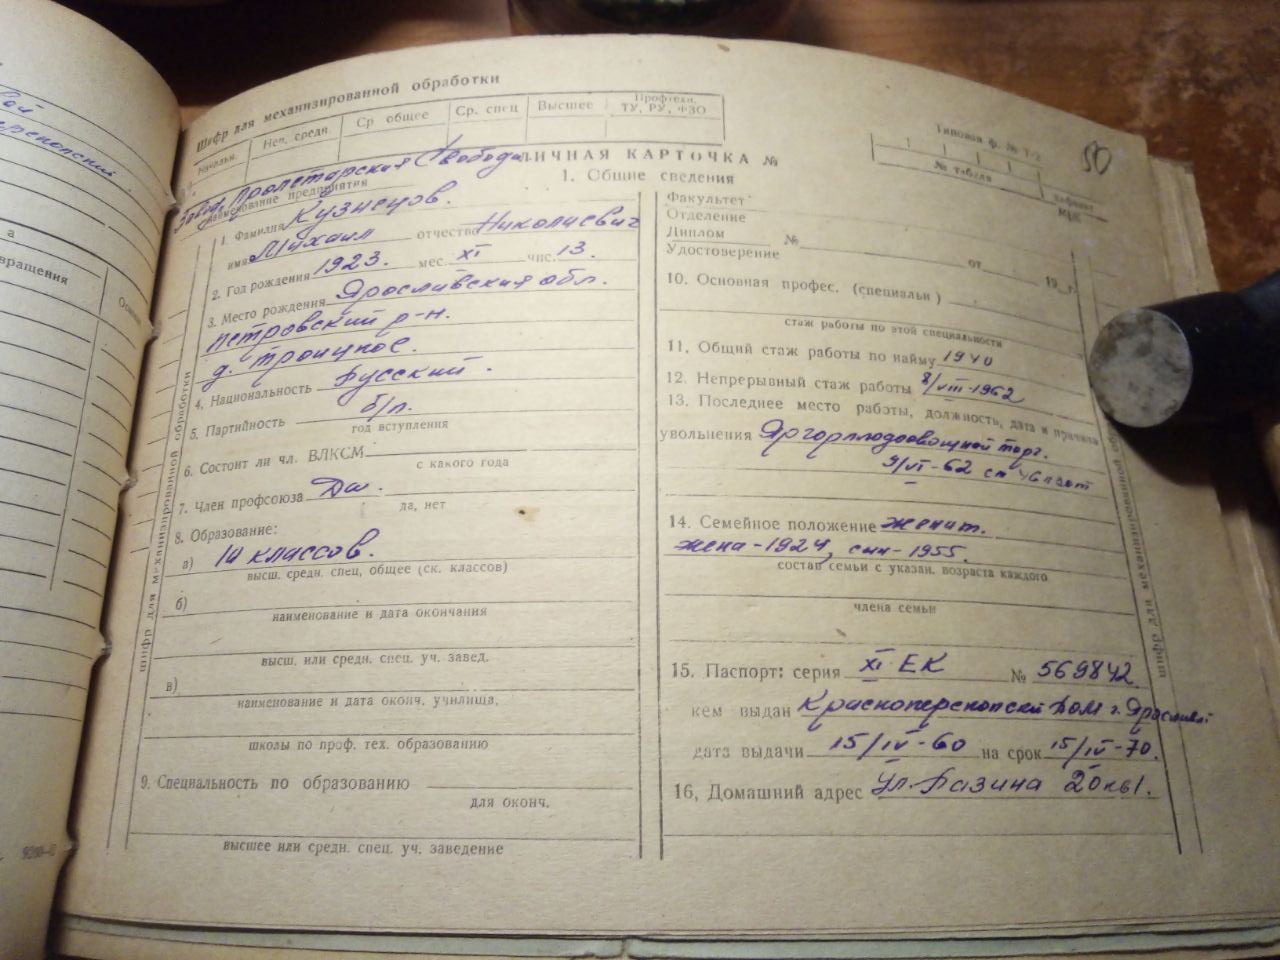 Шифр для механизированной обработки
Начальн.
Неп. средн.
Ср общее
Ср. спец
Высшее
Профтехн.
ТУ, РУ, ФЗО
Типовая ф. № Т-2
№ табеля
90
Завод Пролетарская Свобода
наименование предприятия
ЛИЧНАЯ КАРТОЧКА №
1. Общие сведения
1. Фамилия Кузнецов.
имя Михаил отчество Николаевич
2. Год рождения 1923. мес. XI чис. 13.
3. Место рождения Ярославская обл.
Петровский р-н.
д. Троицкое.
4. Национальность Русский.
5. Партийность б/п.
год вступления
6. Состоит ли чл. ВЛКСМ
с какого года
7. Член профсоюза Да.
да, нет
8. Образование:
а) классов.
высш. средн. спец, общее (ск. классов)
б)
наименование и дата окончания
высш. или средн. спец. уч. завед.
в)
наименование и дата оконч. училища,
школы по проф. тех. образованию
9. Специальность по образованию
для оконч.
высшее или средн. спец. уч. заведение
Факультет
Отделение
Диплом
Удостоверение
№
от 19 г.
10. Основная профес. (специальн)
стаж работы по этой специальности
11. Общий стаж работы по найму 1940
12. Непрерывный стаж работы 8/VIII-1962
13. Последнее место работы, должность, дата и причина
увольнения Яргорплодоовощной торг.
9/VI-62
14. Семейное положение женат.
жена-1924, сын-1955.
состав семьи с указан. возраста каждого
члена семьи
15. Паспорт: серия XI ЕК № 569842
кем выдан г. Ярославля
дата выдачи 15/IV-60 на срок 15/IV-70.
16, Домашний адрес ул. Разина
шифр для механизированной обработки
шифр для механизированной
вращения